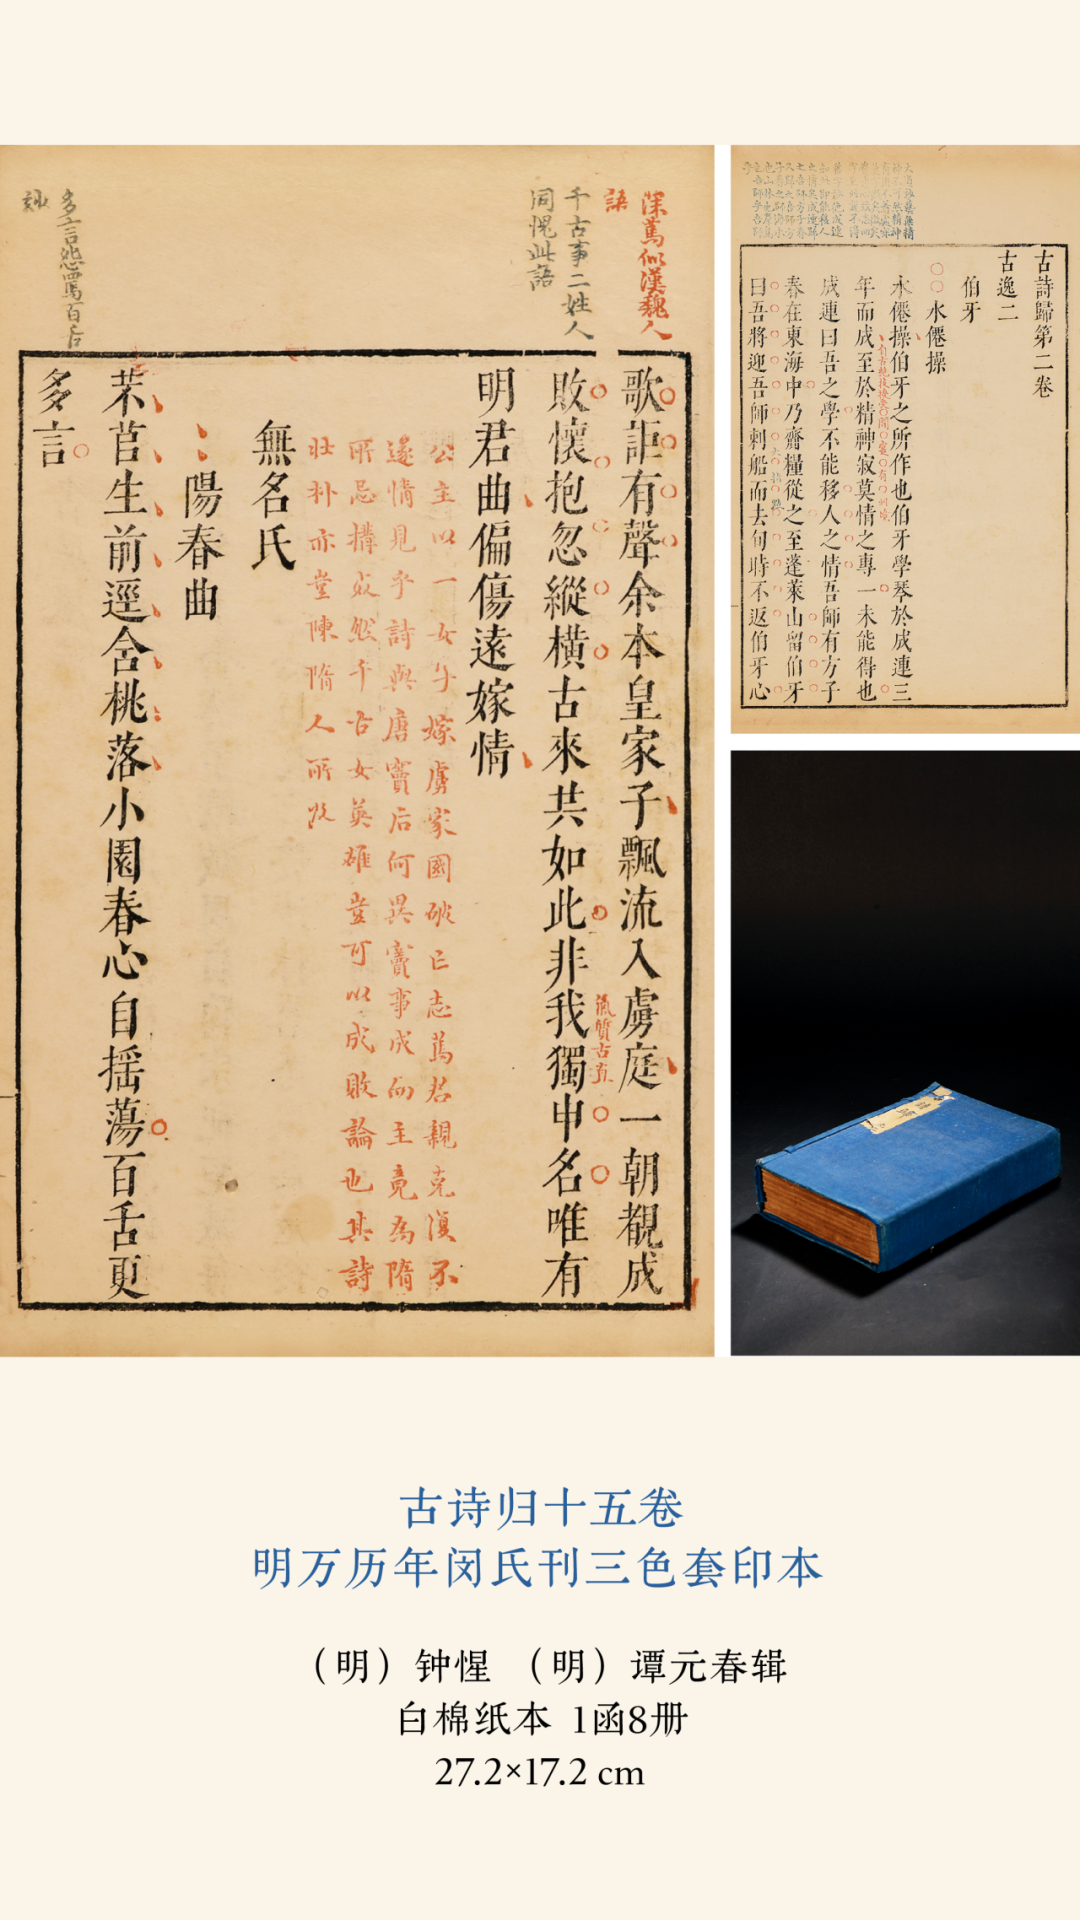 深篤似漢魏人
語
千古事二姓人
同愧此語
多言怨罵百舌
妙
歌詎有聲余本皇家子飄流入虜庭一朝覩成
敗懷抱忽縱橫古來共如此非我獨申名唯有
氣質古直
明君曲偏傷遠嫁情
公主以一女子嫁虜家國破亡志篤君親克復不
遂情見乎詩與唐竇后何異竇事成而主竟為隋
所忌搆死然千古女英雄豈可以成敗論也其詩
壯朴亦陳隋人所
無名氏
陽春曲
芣苢生前逕含桃落小園春心自揺蕩百舌更
多言
古詩歸第二卷
古逸二
伯牙
水僊操
水僊操伯牙之所作也伯牙學琴於成連三
年而成至於精神寂莫情之專一未能得也
成連曰吾之學不能移人之情吾師有方子
春在東海中乃齎糧從之至蓬萊山留伯牙
曰吾將迎吾師刺船而去旬時不返伯牙心
詩歸
古诗归十五卷
明万历年闵氏刊三色套印本
（明）钟惺 （明）谭元春辑
白棉纸本 1函8册
27.2×17.2 cm